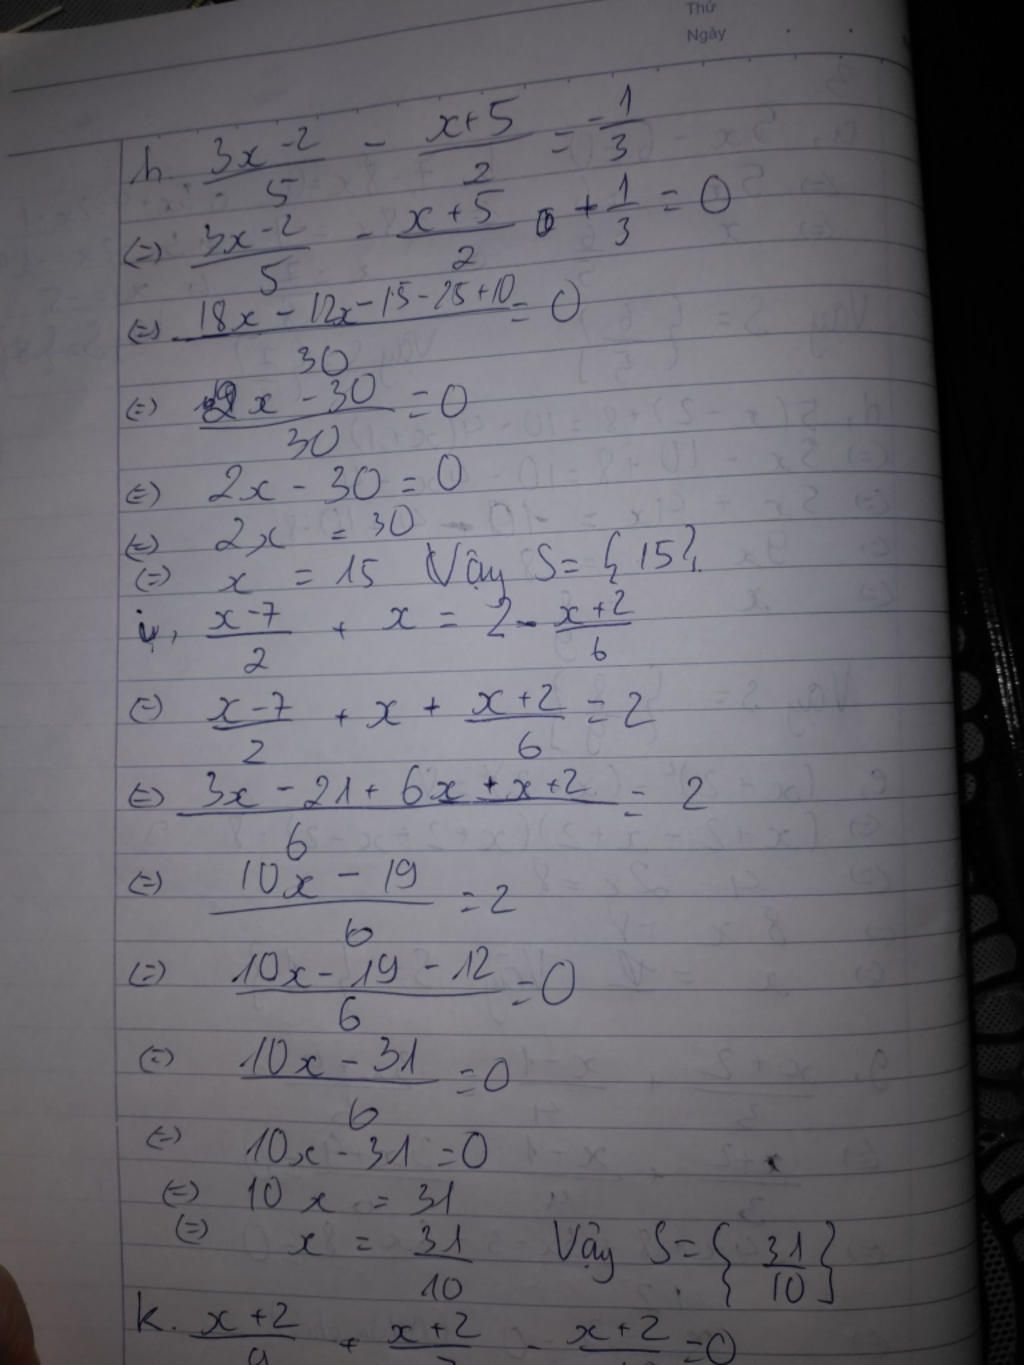 Thứ
Ngày
h. (3x-2)/5 - (x+5)/2 = -1/3
(=) (3x-2)/5 - (x+5)/2 + 1/3 = 0
(=) (18x - 12x - 15 - 25 + 10)/30 = 0
(=) (2x - 30)/30 = 0
(=) 2x - 30 = 0
(=) 2x = 30
(=) x = 15 Vậy S = {15}.
i, (x-7)/2 + x = 2 - (x+2)/6
(=) (x-7)/2 + x + (x+2)/6 = 2
(=) (3x - 21 + 6x + x + 2)/6 = 2
(=) (10x - 19)/6 = 2
(=) (10x - 19 - 12)/6 = 0
(=) (10x - 31)/6 = 0
(=) 10x - 31 = 0
(=) 10x = 31
(=) x = 31/10 Vậy S = {31/10}
k. x+2 + x+2 - x+2 = 0